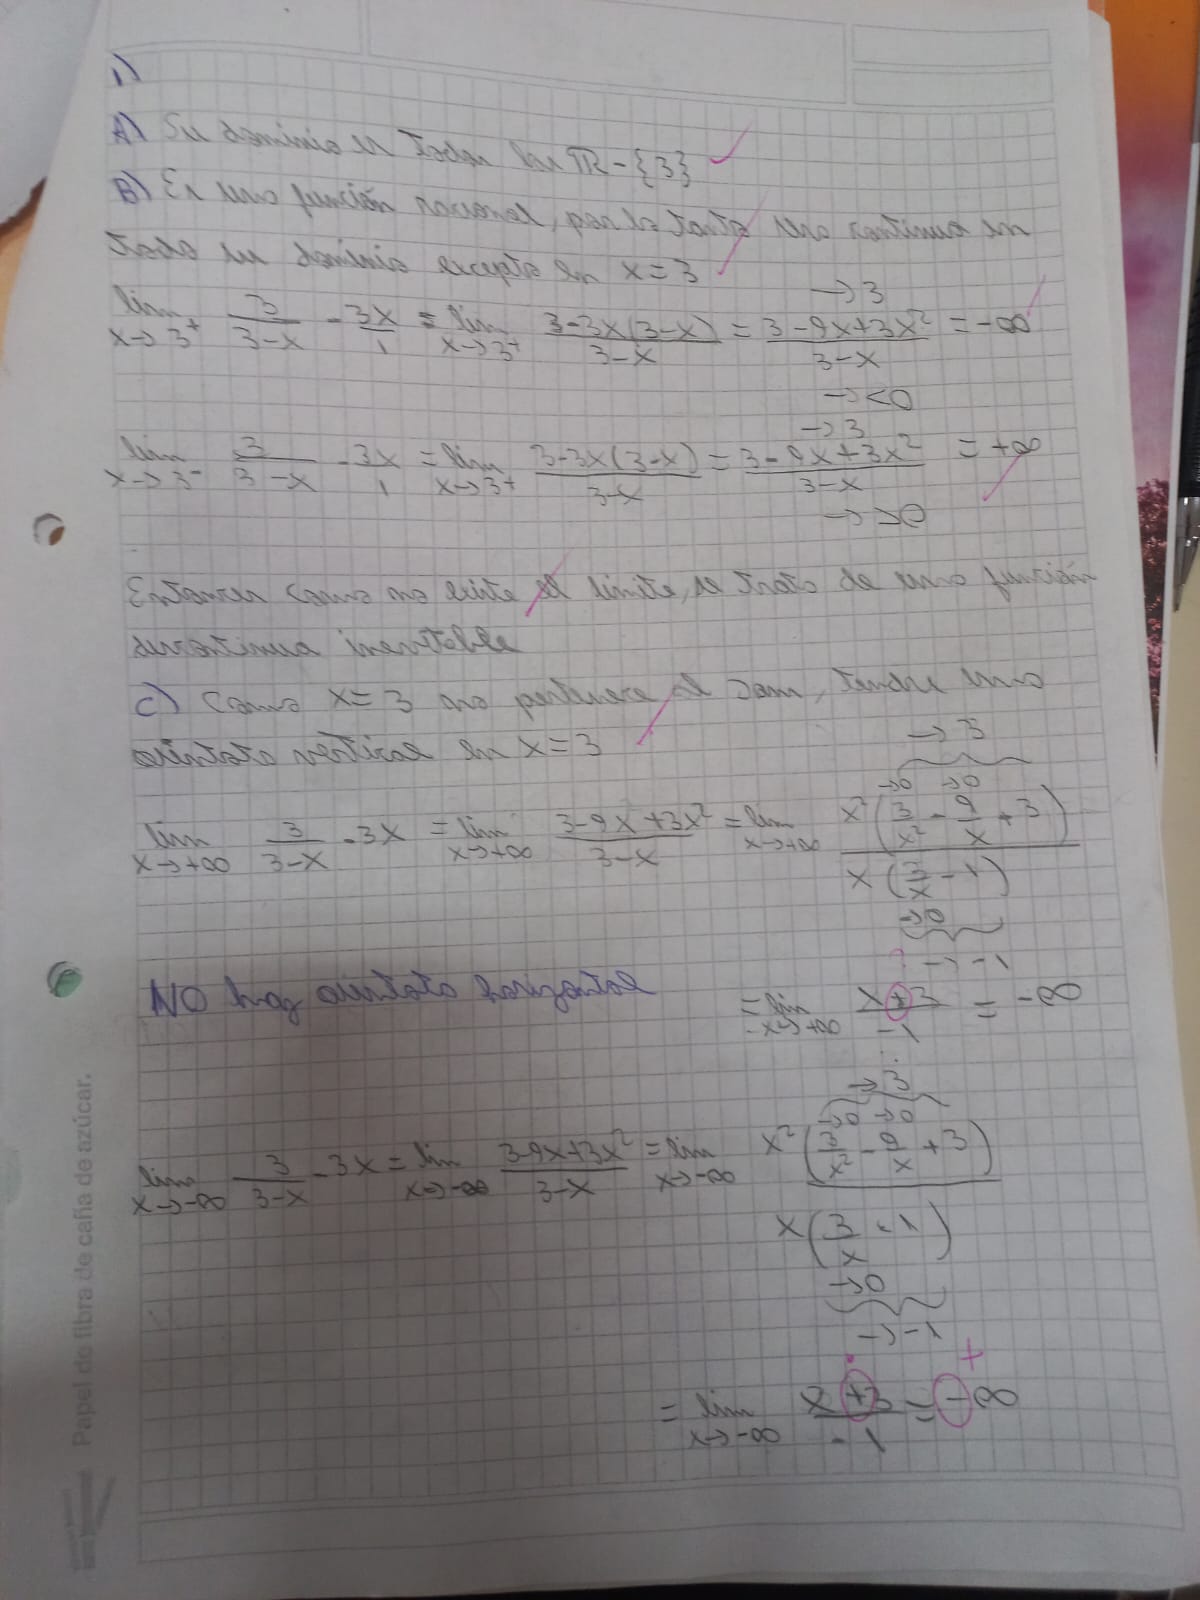 1)
A) Su dominio es todos los ℝ - {3}
B) Es una función racional, por lo tanto será continua en
todo su dominio excepto en x = 3
lim x→3⁺ 3/(3-x) - 3x/1 = lim x→3⁺ (3-3x(3-x))/(3-x) = (3-9x+3x²)/(3-x) = -∞
→3
→<0
lim x→3⁻ 3/(3-x) - 3x/1 = lim x→3⁺ (3-3x(3-x))/(3-x) = (3-9x+3x²)/(3-x) = +∞
→3
→>0
Entonces como no existe el límite, se trata de una función
discontinua inevitable
C) Como x = 3 no pertenece al Dom, tendré una
asíntota vertical en x = 3
lim x→+∞ 3/(3-x) - 3x = lim x→+∞ (3-9x+3x²)/(3-x) = lim x→+∞ x²(3/x² - 9/x + 3)/x(3/x - 1)
→3
→0 →0
→0
→-1
NO hay asíntota horizontal
= lim x→+∞ (x+3)/-1 = -∞
lim x→-∞ 3/(3-x) - 3x = lim x→-∞ (3-9x+3x²)/(3-x) = lim x→-∞ x²(3/x² - 9/x + 3)/x(3/x - 1)
→3
→0 →0
→0
→-1
+
= lim x→-∞ (x+3)/-1 = -∞
Papel de fibra de caña de azúcar.